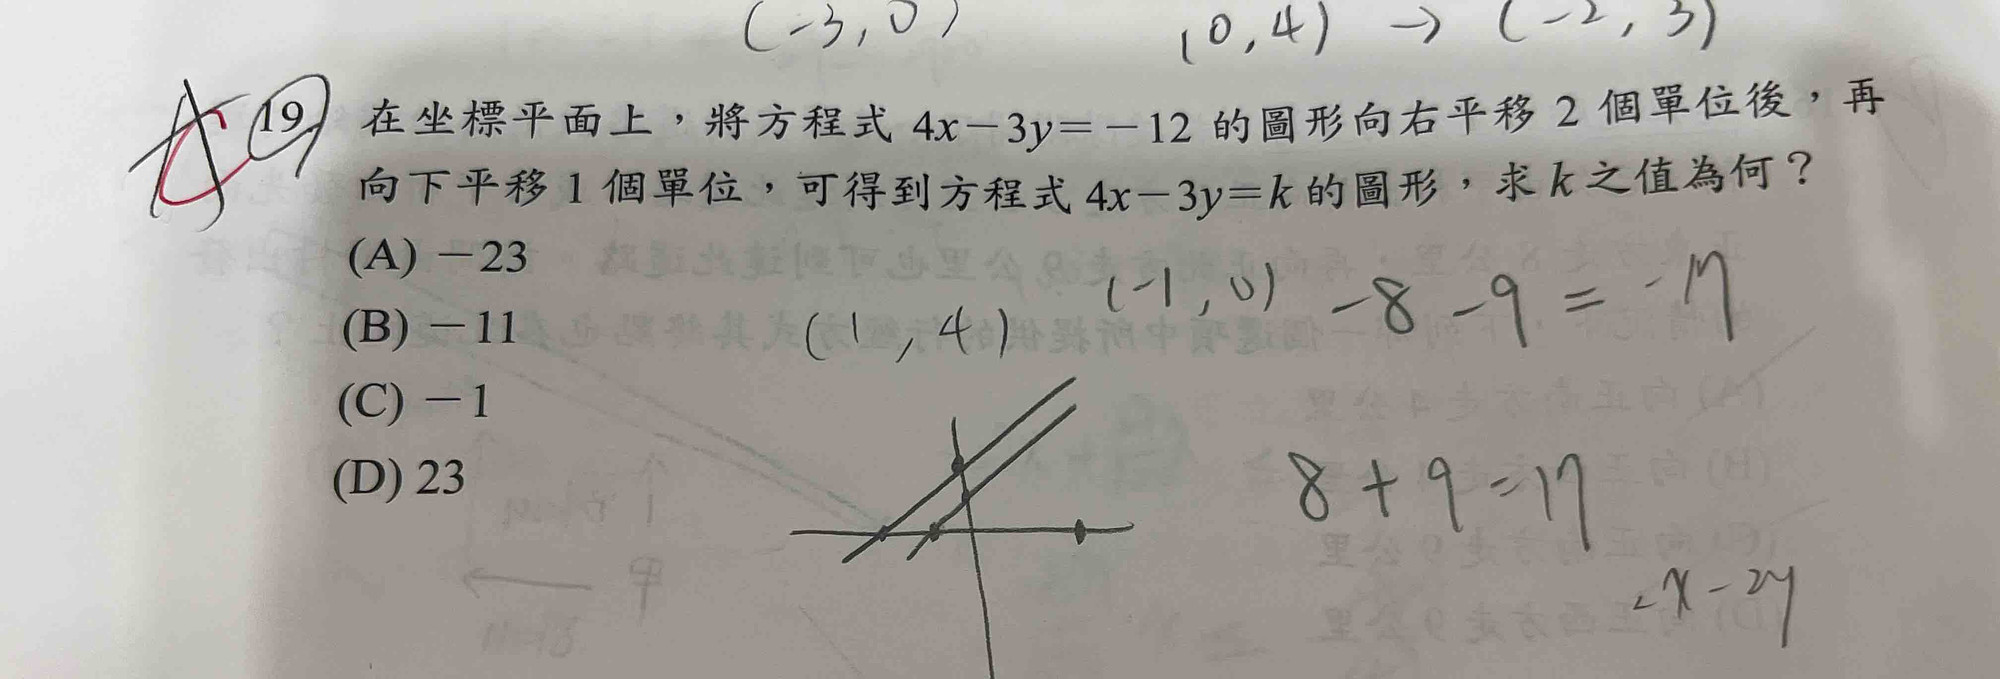 (-3,0) (0,4) → (-2,3)
19 在坐標平面上，將方程式 4x－3y＝－12 的圖形向右平移 2 個單位後，再
向下平移 1 個單位，可得到方程式 4x－3y＝k 的圖形，求 k 之值為何？
(A) －23
(B) －11
(C) －1
(D) 23
(1,4) (-1,0) -8-9=-17
8+9=17